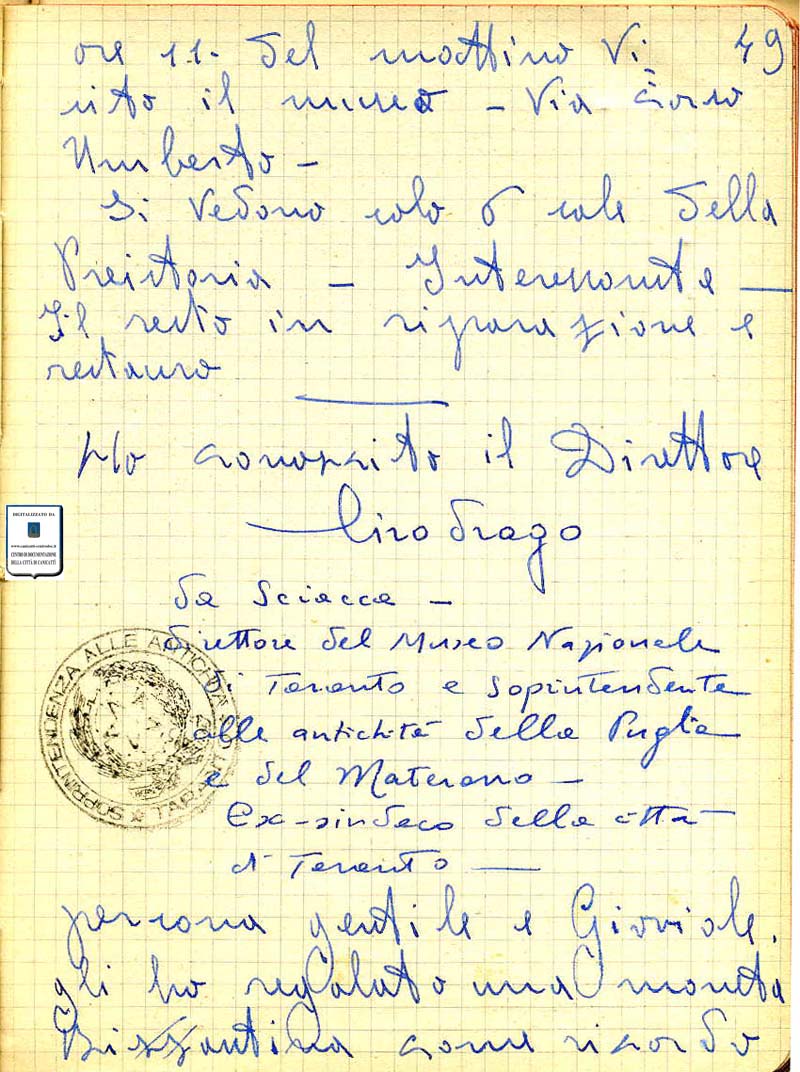 49
ore 11. del mattino Vi
sito il museo - Via Corso
Umberto -
Si vedono solo 6 sale della
Preistoria - Interessante -
Il resto in riparazione e
restauro
Ho conosciuto il Direttore
Ciro Drago
da Sciacca -
direttore del Museo Nazionale
di Taranto e Soprintendente
alle antichità della Puglia
e del Materano -
Ex-sindaco della città
di Taranto -
persona gentile e Gioviale.
gli ho regalato una moneta
Bizzantina come ricordo
DIGITALIZZATO DA
CENTRO DI DOCUMENTAZIONE
DELLA CITTÀ DI CANICATTÌ
SOPRINTENDENZA ALLE ANTICHITÀ